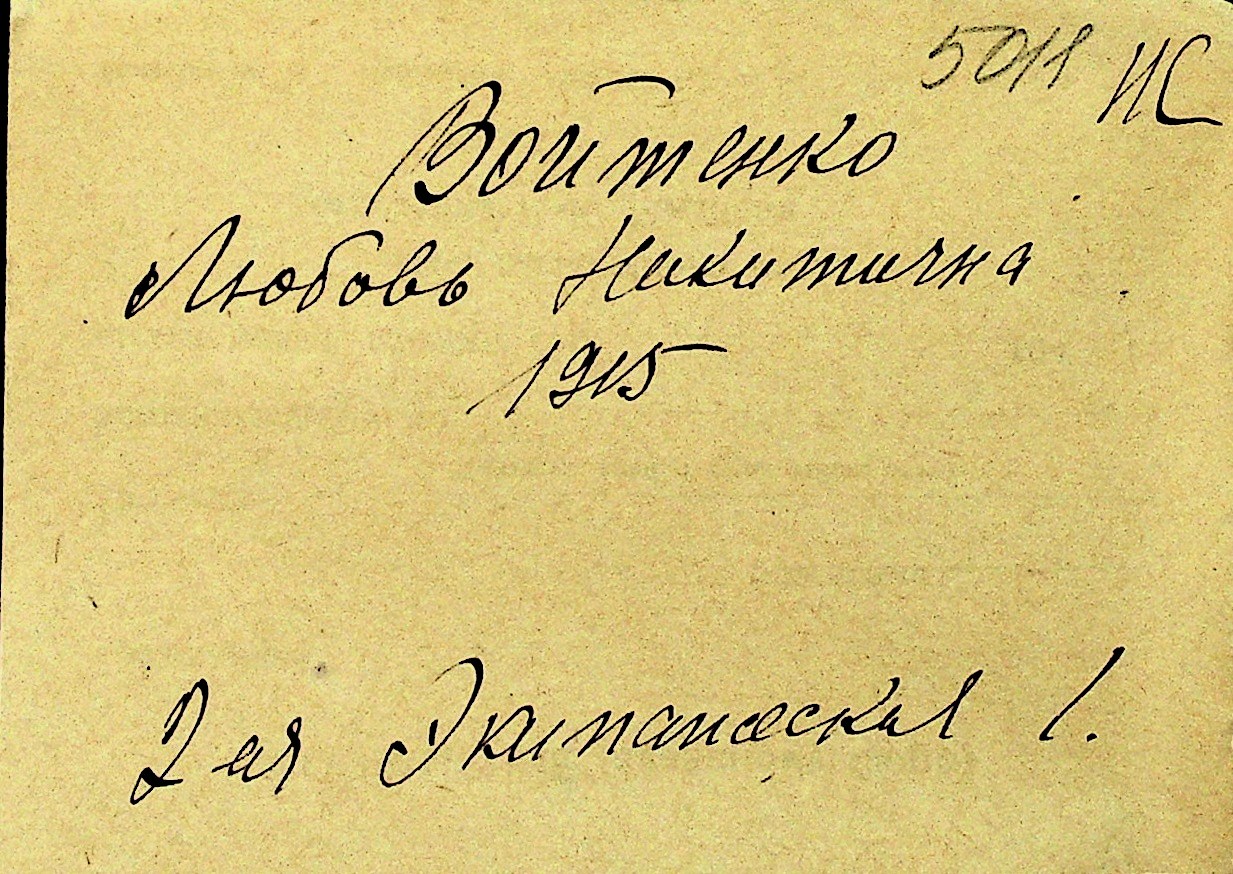 5011 ИС
Войтенко
Любовь Никитична
1915
2 ая Экипажеская 1.